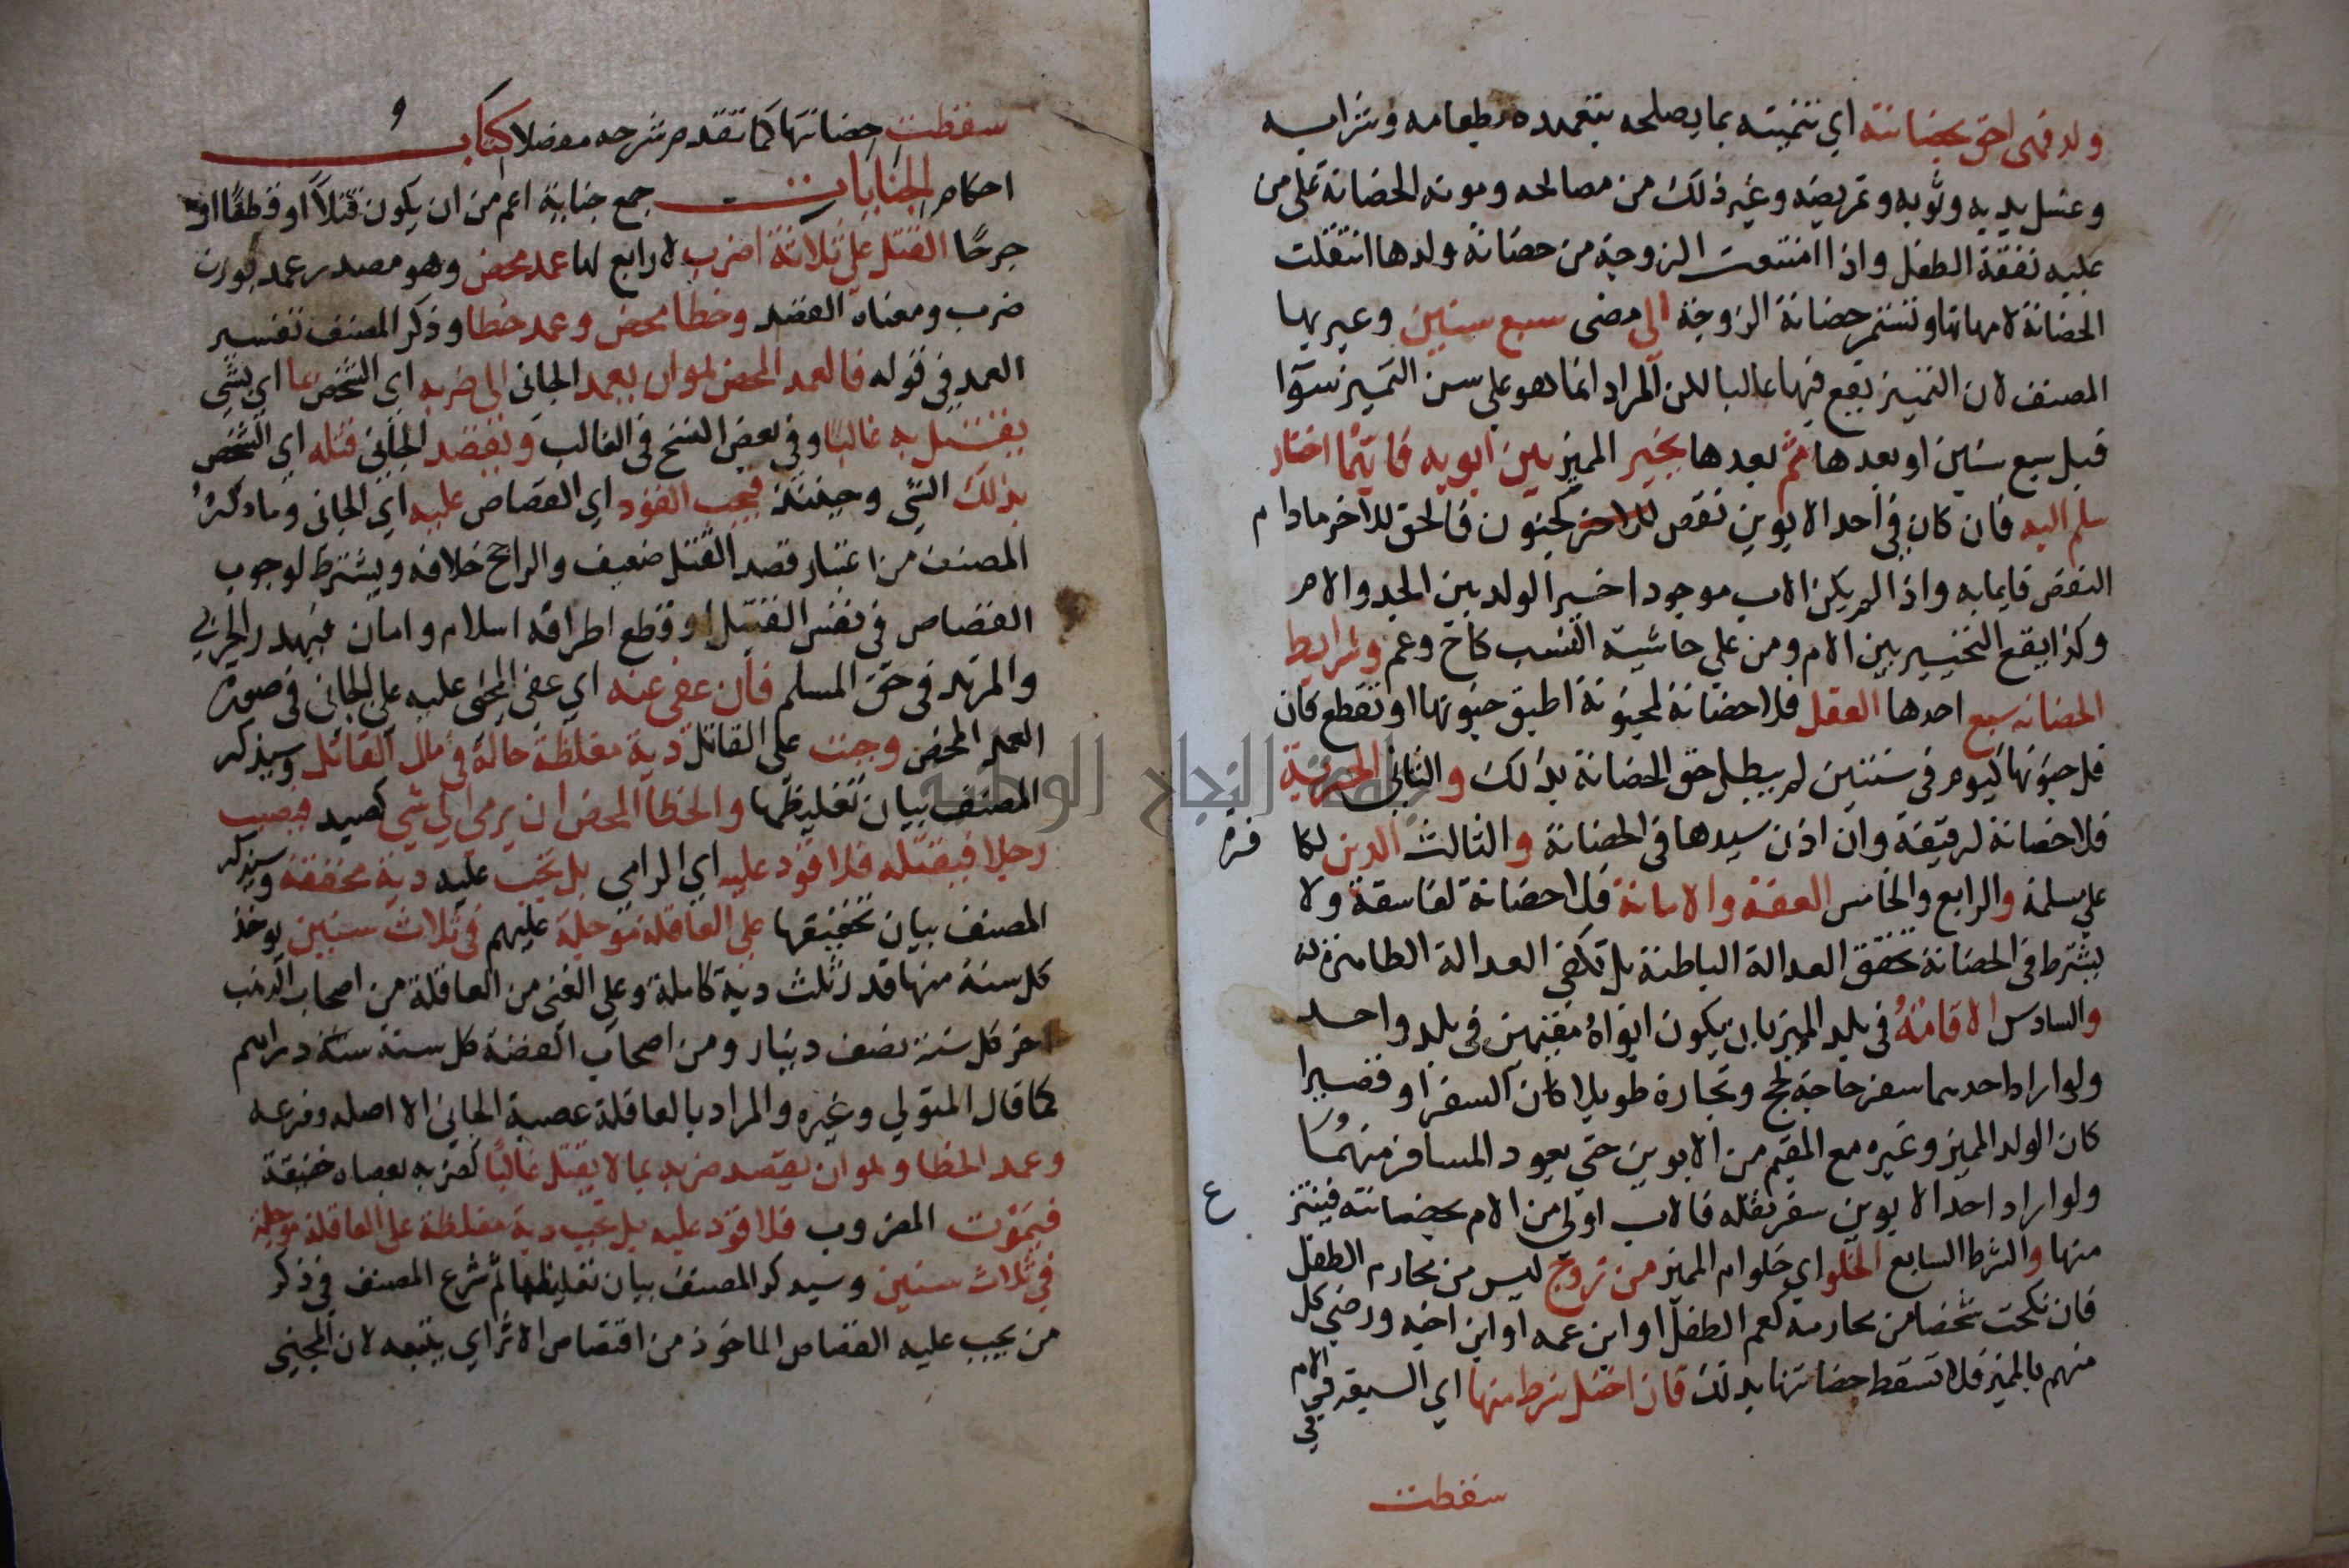 ولد فهي احق بحضانته اي تنميته بما يصلحه بتعهده بطعامه وشرابه
وغسل بدنه وثوبه وتمريضه وغير ذلك من مصالحه ومونة الحضانة على من
عليه نفقة الطفل واذا امتنعت الزوجة من حضانة ولدها انتقلت
الحضانة لامهاتها وتستمر حضانة الزوجة الى مضى سبع سنين وعبر بها
المصنف لان التمييز يقع فيها غالبا لكن المراد انما هو على سن التمييز سوآا
قبل سبع سنين او بعدها ثم بعدها يخير المميز بين ابويه فايهما اختار
سلم اليه فان كان في احد الابوين نقص كجنون فالحق للاخر مادام
النقص قايما به واذا لم يكن الاب موجودا خير الولد بين الجد والام
وكذا يقع التخيير بين الام ومن على حاشية النسب كاخ وعم وشرايط
الحضانه سبع احدها العقل فلا حضانة لمجنونة اطبق جنونها او تقطع كان
قل جنونها كيوم في سنتين لم يبطل حق الحضانة بذلك والثاني الحرية
فلا حضانة لرقيقة وان اذن سيدها في الحضانة والثالث الدين لكا
فرة
على مسلمة والرابع والخامس العفة والامانة فلا حضانة لفاسقة ولا
يشترط في الحضانة تحقق العدالة الباطنة بل تكفي العدالة الظاهرة
والسادس الاقامة في بلد المميز بان يكون ابواه مقيمين في بلد واحد
ولو اراد احدهما سفر حاجة كحج وتجارة طويلا كان السفر او قصيرا
كان الولد المميز وغيره مع المقيم من الابوين حتى يعود المسافر منهما
ولو اراد احد الابوين سفر نقله فالاب اولى من الام بحضانته فينتز
ع
منها والشرط السابع الخلو اي خلو ام المميز من زوج ليس من محارم الطفل
فان نكحت شخصا من محارمه كعم الطفل او ابن عمه او ابن اخيه ورضي كل
منهم بالمميز فلا تسقط حضانتها بذلك فان اختل شرط منها اي السبعة في الام
سقطت
سقطت حضانتها كما تقدم شرحه مفصلا كتاب
احكام الجنايات جمع جناية اعم من ان يكون قتلا او قطعا او
جرحا القتل على ثلاثة اضرب لا رابع لها عمد محض وهو مصدر عمد بوزن
ضرب ومعناه القصد وخطا محض وعمد خطا وذكر المصنف تفسير
العمد في قوله فالعمد المحض هو ان يعمد الجاني الى ضربه اي الشخص بما اي بشي
يقتل به غالبا وفي بعض النسخ في الغالب ويقصد الجاني قتله اي الشخص
بذلك الشي وحينئذ فيجب القود اي القصاص عليه اي الجاني وما ذكره
المصنف من اعتبار قصد القتل ضعيف والراجح خلافه ويشترط لوجوب
القصاص في نفس القتيل او قطع اطرافه اسلام وامان فيهدر الحربي
والمرتد في حق المسلم فان عفى عنه اي عفى المجنى عليه على الجاني في صورة
العمد المحض وجبت على القاتل دية مغلظة حالة في مال القاتل وسيذكر
المصنف بيان تغليظها والخطا المحض ان يرمي الى شي كصيد فيصيب
رجلا فيقتله فلا قود عليه اي الرامي بل تجب عليه دية مخففة وسيذكر
المصنف بيان تخفيفها على العاقلة مؤجلة عليهم في ثلاث سنين يوخذ
كل سنة منها قدر ثلث دية كاملة وعلى الغني من العاقلة من اصحاب الذهب
اخر كل سنة نصف دينار ومن اصحاب الفضة كل سنة ستة دراهم
كما قال المتولي وغيره والمراد بالعاقلة عصبة الجاني الا اصله وفرعه
وعمد الخطا وهو ان يقصد ضربه بما لا يقتل غالبا كضربه بعصاه خفيفة
فيموت المضروب فلا قود عليه بل تجب دية مغلظة على العاقلة مؤجلة
في ثلاث سنين وسيذكر المصنف بيان تغليظها ثم شرع المصنف في ذكر
من يجب عليه القصاص الماخوذ من اقتصاص الاثر اي يتبعه لان المجني
جامعة النجاح الوطنية